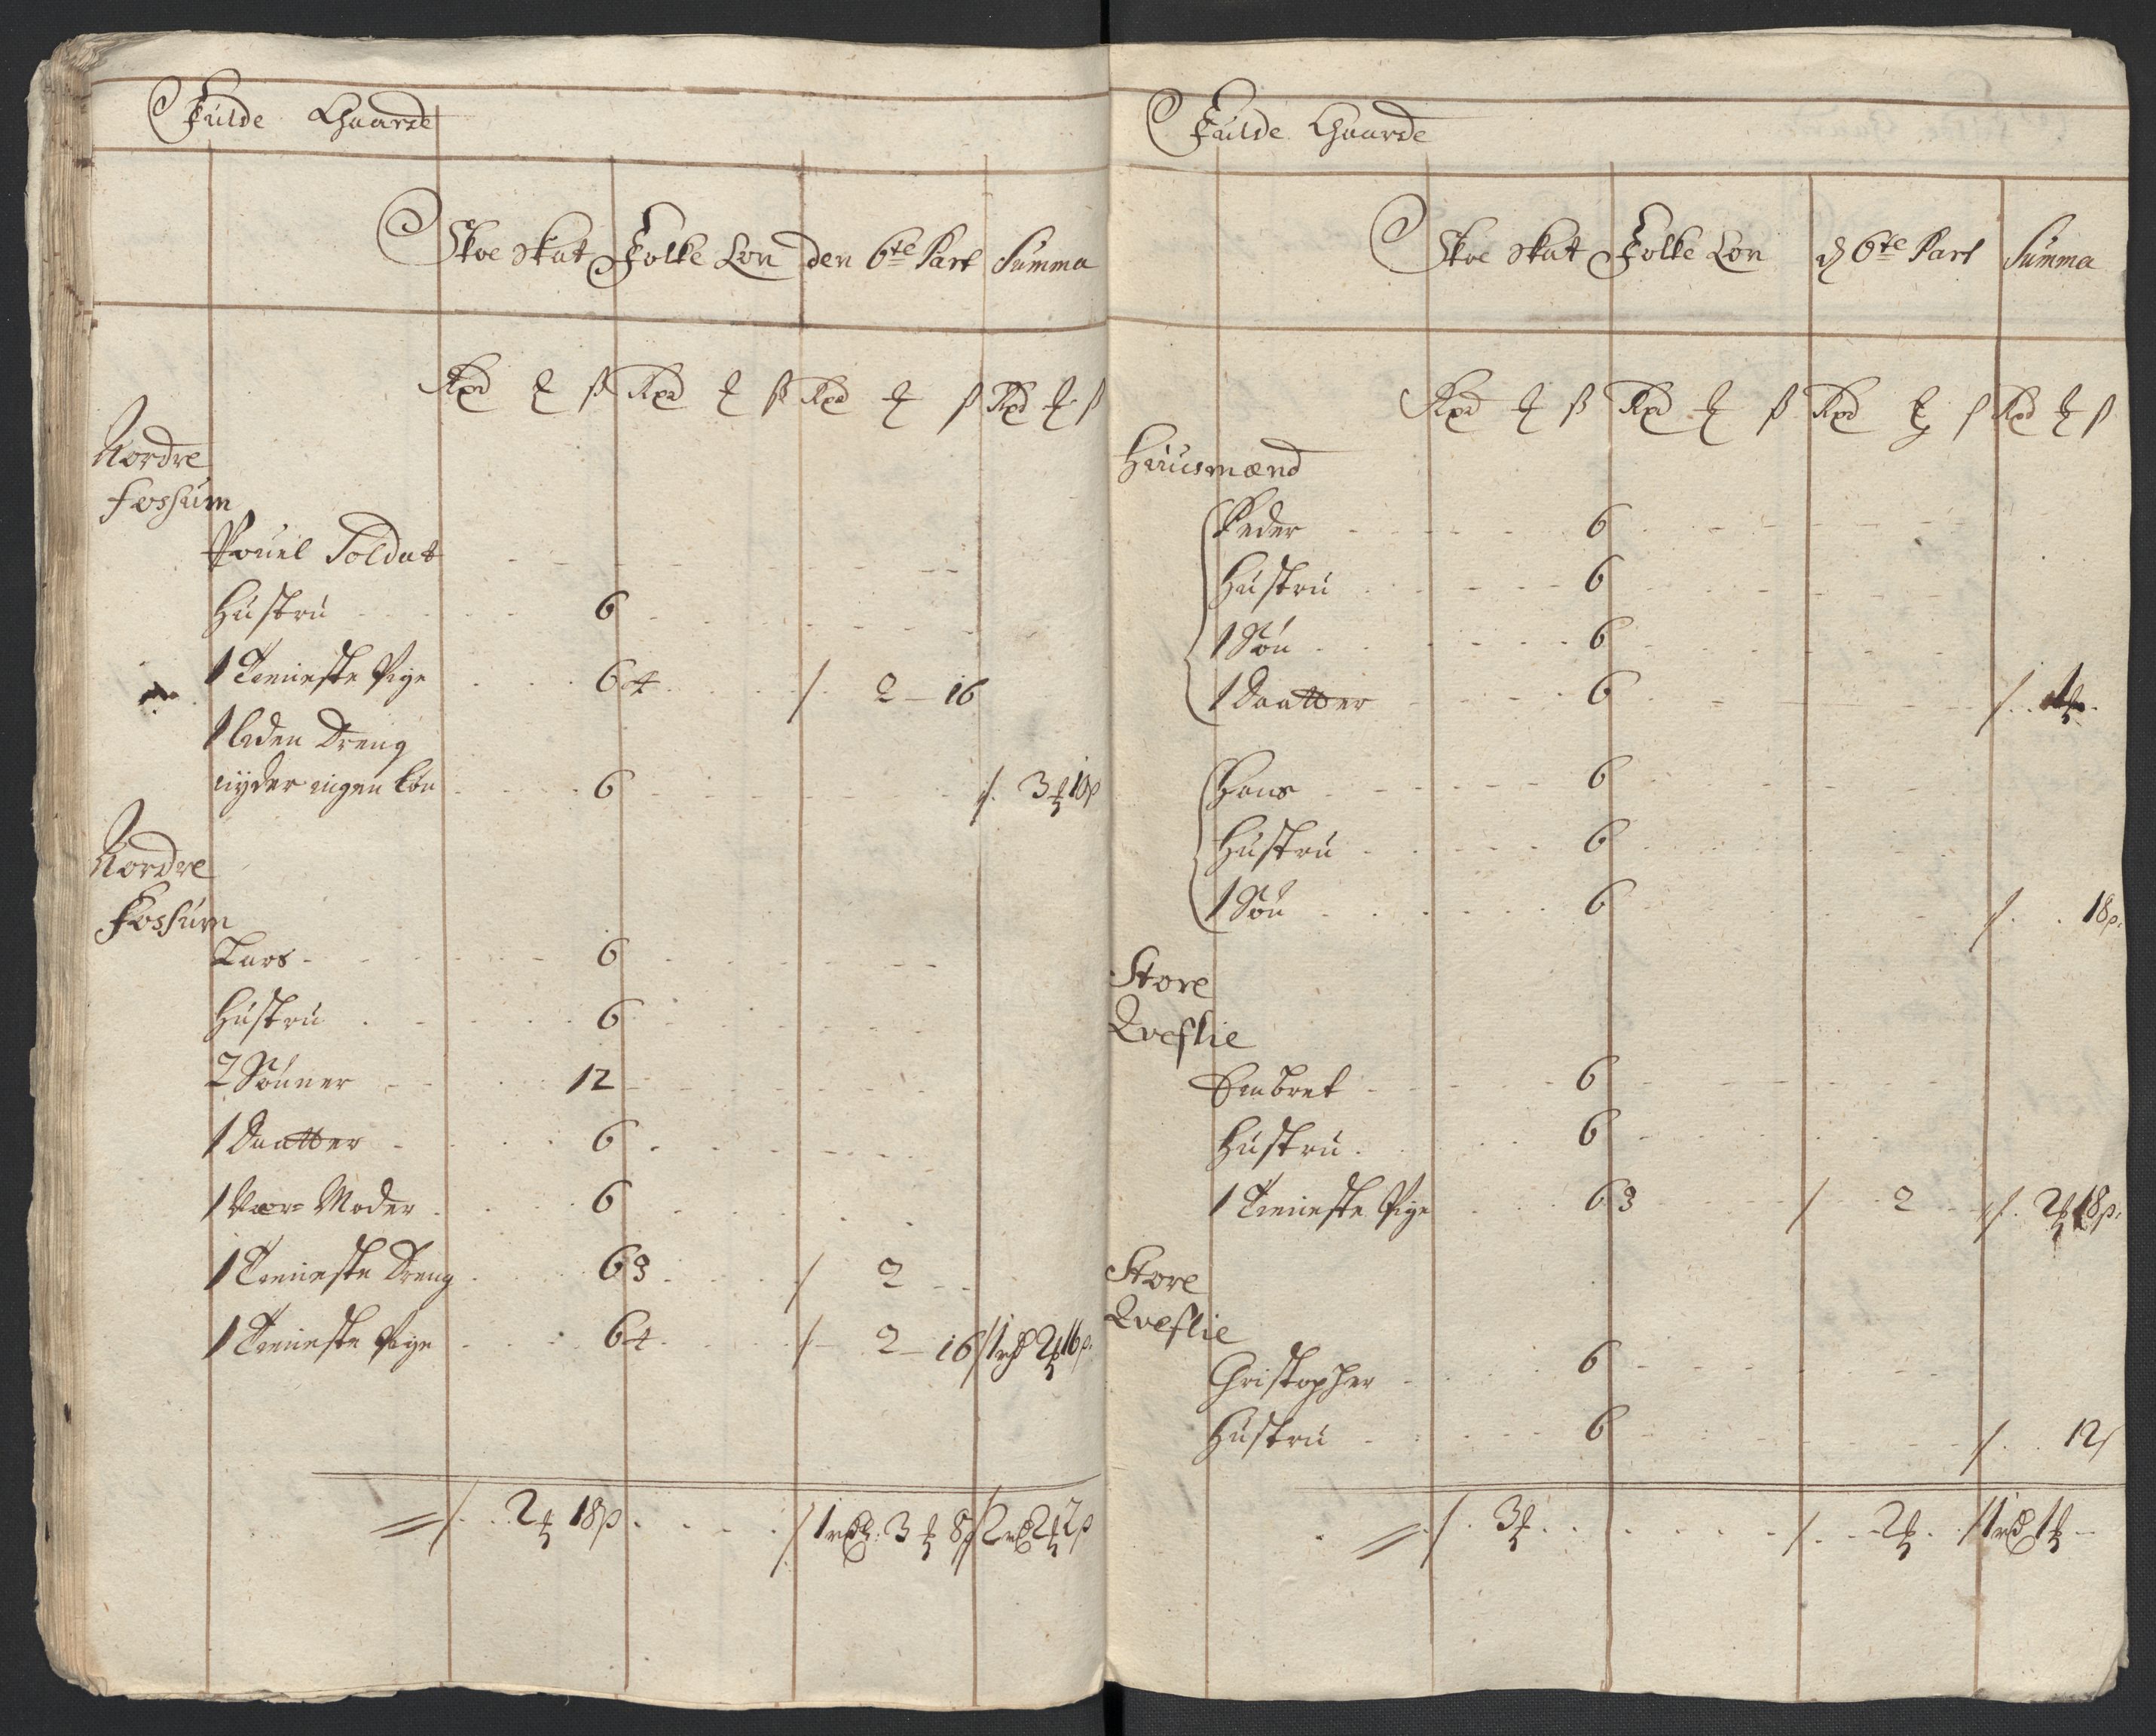 Fulde Gaarde
Skoe Skat Folke Lon den 6te Part Summa
Rxd ß Rxd ß Rxd ß Rxd ß
Nordre
Fossum
Pouel Soldat
Hustru 6
1 Tieniste Pige 6 4 / 2 16
1 liden Dreng
nyder ingen Løn 6 /. 3 10ß
Nordre
Fossum
Lars 6
Hustru 6
2 Sønner 12
1 Daatter 6
1 Vær Moder 6
1 Tieniste Dreng 6 3 / 2
1 Tieniste Pige 6 4 / 2 16 / 1 rd 2 16ß
/. 2 18ß / 1 rd 3 8ß / 2 rd 2 2ß
Fulde Gaarde
Skoe Skat Folke Lon d 6te Part Summa
Rxd ß Rxd ß Rxd ß Rxd ß
Huusmænd
Peder 6
Hustru 6
1 Søn 6
1 Daatter 6 /. 1
Hans 6
Hustru 6
1 Søn 6 /. 18ß
Store
Qveslie
Embret 6
Hustru 6
1 Tieniste Pige 6 3 / 2 /. 2 18ß
Store
Qveslie
Christopher 6
Hustru 6 /. 12
/. 3 /. 2 / 1 rd 1